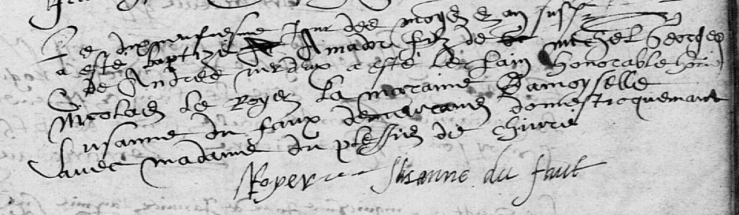 Le dix neufiesme jour des moys & an susd
a esté baptizé Amador filz de michel Georges
de Andrée a esté le parain honorable homme
Nicolas le Royer La maraine Damoyselle
Susanne du faux demeurante domestiquement
avec madame du plessis de chivré
Royer Susanne du faut